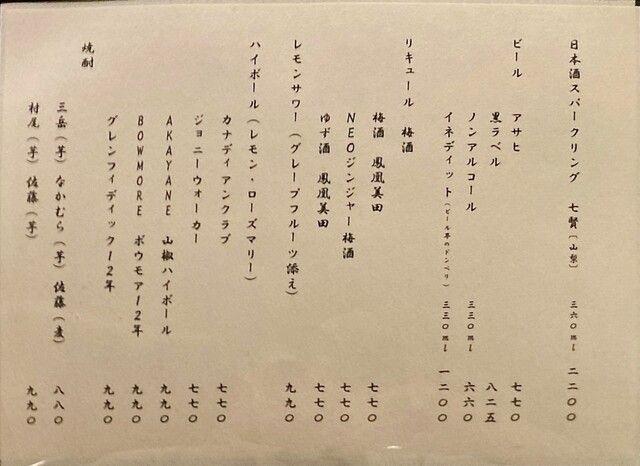 日本酒スパークリング 七賢（山梨） 三六〇ml 二二〇〇
ビール アサヒ 七七〇
黒ラベル 八二五
ノンアルコール 三三〇ml 六六〇
イネディット（ビール界のドンペリ） 三三〇ml 一二〇〇
リキュール 梅酒
梅酒 鳳凰美田 七七〇
NEOジンジャー梅酒 七七〇
ゆず酒 鳳凰美田 七七〇
レモンサワー（グレープフルーツ添え） 九九〇
ハイボール（レモン・ローズマリー）
カナディアンクラブ 七七〇
ジョニーウォーカー 七七〇
AKAYANE 山椒ハイボール 九九〇
BOWMORE ボウモア12年 九九〇
グレンフィディック12年 九九〇
焼酎
三岳（芋）なかむら（芋）佐藤（麦） 八八〇
村尾（芋）佐藤（芋） 九九〇